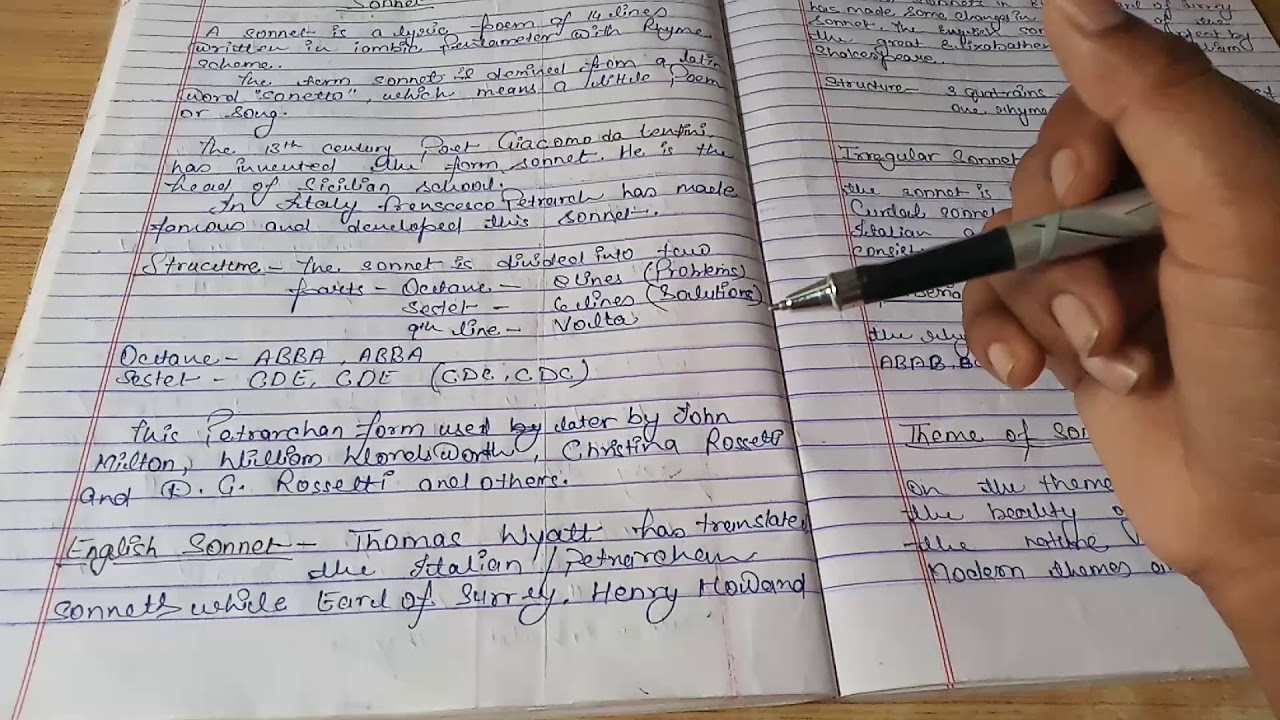 Sonnet
A sonnet is a lyric poem of 14 lines
written in iambic Pentameter with Rhyme
scheme.
The term sonnet is derived from a latin
word "sonetto", which means a little Poem
or song.
The 13th century Poet Giacomo da Lentini
has invented the form sonnet. He is the
head of Sicilian school.
In Italy Petrarch has made
famous and developed this sonnet.
Structure - The sonnet is divided into two
parts - Octane - 8 lines (Problems)
Sestet - 6 lines (Solutions)
9th line - Volta
Octane - ABBA, ABBA
Sestet - CDE, CDE (CDC, CDC)
This Petrarchan form used by later by John
Milton, William Wordsworth, Christina Rossetti
and D. G. Rossetti and others.
English Sonnet - Thomas Wyatt has translated
the Italian / Petrarchan
sonnets while Earl of Surrey, Henry Howard
has made some changes in
sonnet. the English
the great Elizabethan
Shakespeare.
Structure - 3 quatrains
are rhyme
Irregular Sonnet
the sonnet is
sonnet
Italian
the
ABAB, B
Theme of Son
On the theme
the beauty
the nature
Modern themes